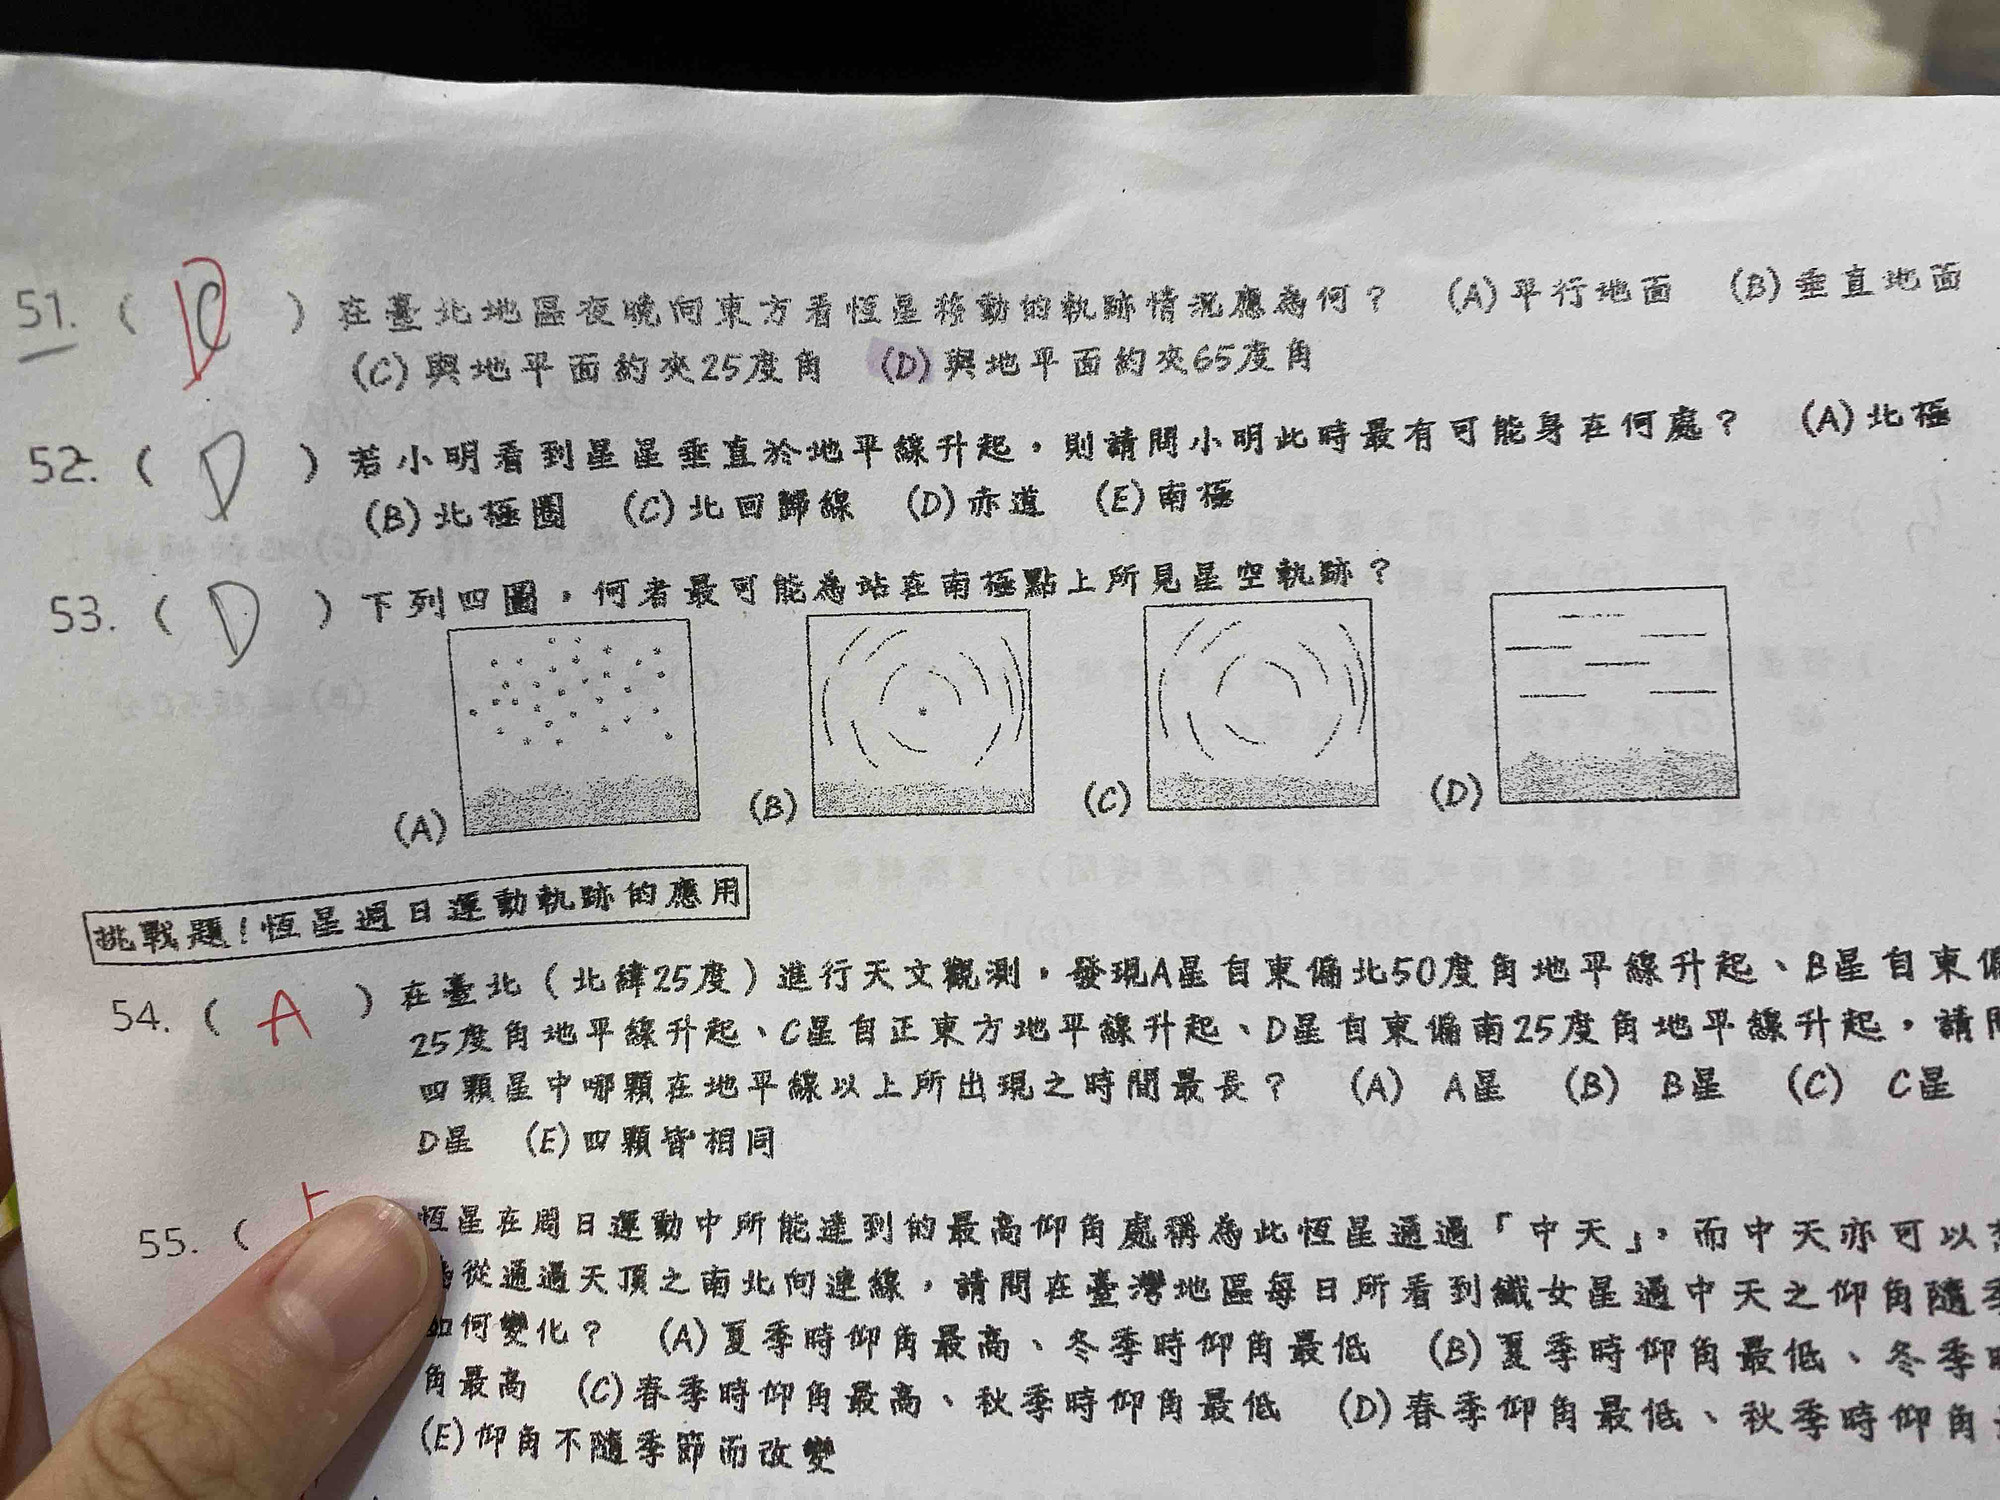 51. ( D ) 在臺北地區夜晚向東方看恆星移動的軌跡情況應為何？ (A)平行地面 (B)垂直地面
(C)與地平面約夾25度角 (D)與地平面約夾65度角
52. ( D ) 若小明看到星星垂直於地平線升起，則請問小明此時最有可能身在何處？ (A)北極
(B)北極圈 (C)北回歸線 (D)赤道 (E)南極
53. ( D ) 下列四圖，何者最可能為站在南極點上所見星空軌跡？
(A) (B) (C) (D)
挑戰題！恆星週日運動軌跡的應用
54. ( A ) 在臺北（北緯25度）進行天文觀測，發現A星自東偏北50度角地平線升起、B星自東偏
25度角地平線升起、C星自正東方地平線升起、D星自東偏南25度角地平線升起，請問
四顆星中哪顆在地平線以上所出現之時間最長？ (A) A星 (B) B星 (C) C星
D星 (E)四顆皆相同
55. ( 恆星在周日運動中所能達到的最高仰角處稱為此恆星通過「中天」，而中天亦可以
從通過天頂之南北向連線，請問在臺灣地區每日所看到織女星過中天之仰角隨季
如何變化？ (A)夏季時仰角最高、冬季時仰角最低 (B)夏季時仰角最低、冬季時
角最高 (C)春季時仰角最高、秋季時仰角最低 (D)春季仰角最低、秋季時仰角
(E)仰角不隨季節而改變